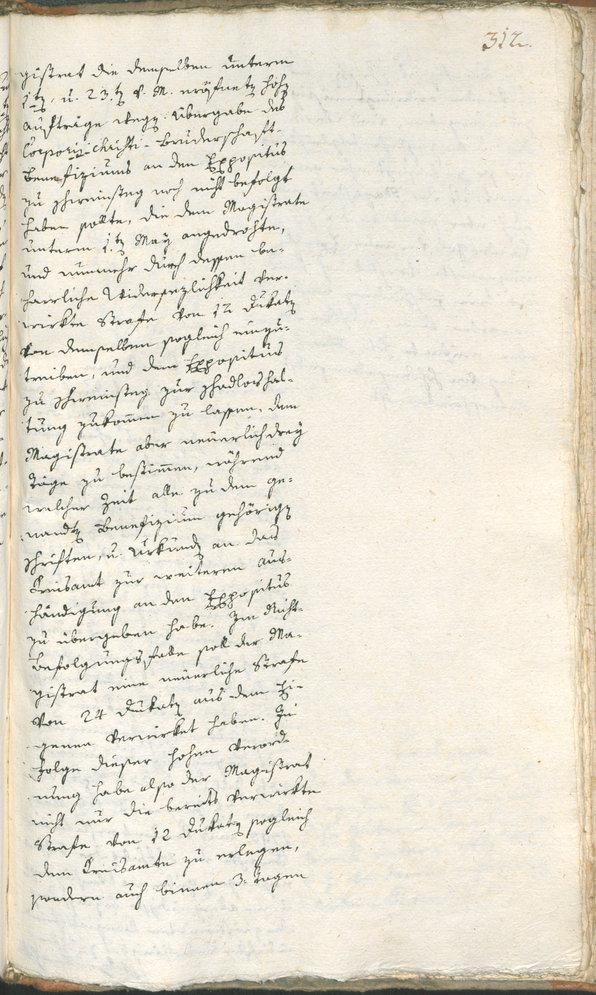 312.
gistrat die demselben unterm
1tz, u. 23.tz v. M. eröfnetz hohz
Aufträge wegz. Übergabe des
Corporis-Christi-Bruderschaft-
Benefiziums an den Expositus
zu noch nicht befolgt
haben sollte, die dem Magistrate
unterm 1.tz May angedrohte,
und nunmehr durch dessen be-
harrliche Widersezlichkeit ver-
wirkte Strafe von 12 Dukatz
von demselben sogleich einzu-
treiben, und dem Expositus
zu zur Schadloshal-
tung zukommen zu lassen, dem
Magistrate aber neuerlich drey
Täge zu bestimmen, während
welcher Zeit alle zu dem ge-
nandtz Benefizium gehörigz
Schriften, u. Urkundz an das
Kreisamt zur weiteren Aus-
händigung an den Expositus
zu übergeben habe. Im Nicht-
befolgungsfalle soll der Ma-
gistrat eine neuerliche Strafe
von 24 Dukatz aus dem Ei-
genen verwirket haben. Zu
Folge dieser hohen Verord-
nung habe also der Magistrat
nicht nur die bereits verwirkte
Strafe von 12 Dukatz sogleich
dem Kreisamte zu erlegen,
sondern auch binnen 3. Tagen